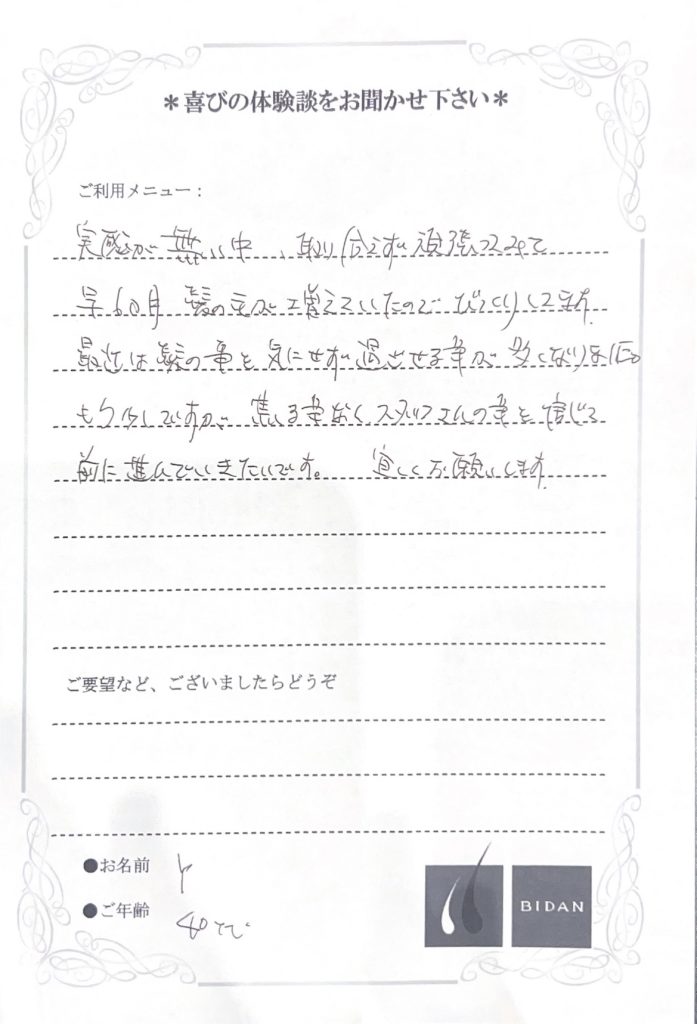 ＊喜びの体験談をお聞かせ下さい＊
ご利用メニュー：
実感が無い中、取り合えず頑張ってみて
早6ヶ月 髪の毛が増えていたのでびっくりしてます。
最近は髪の事を気にせず過せる事が多くなりました。
もう少しですが、焦る事なくスタッフさんの事を信じて
前に進んでいきたいです。 宜しくお願いします。
ご要望など、ございましたらどうぞ
●お名前 Y
●ご年齢 40代
BIDAN